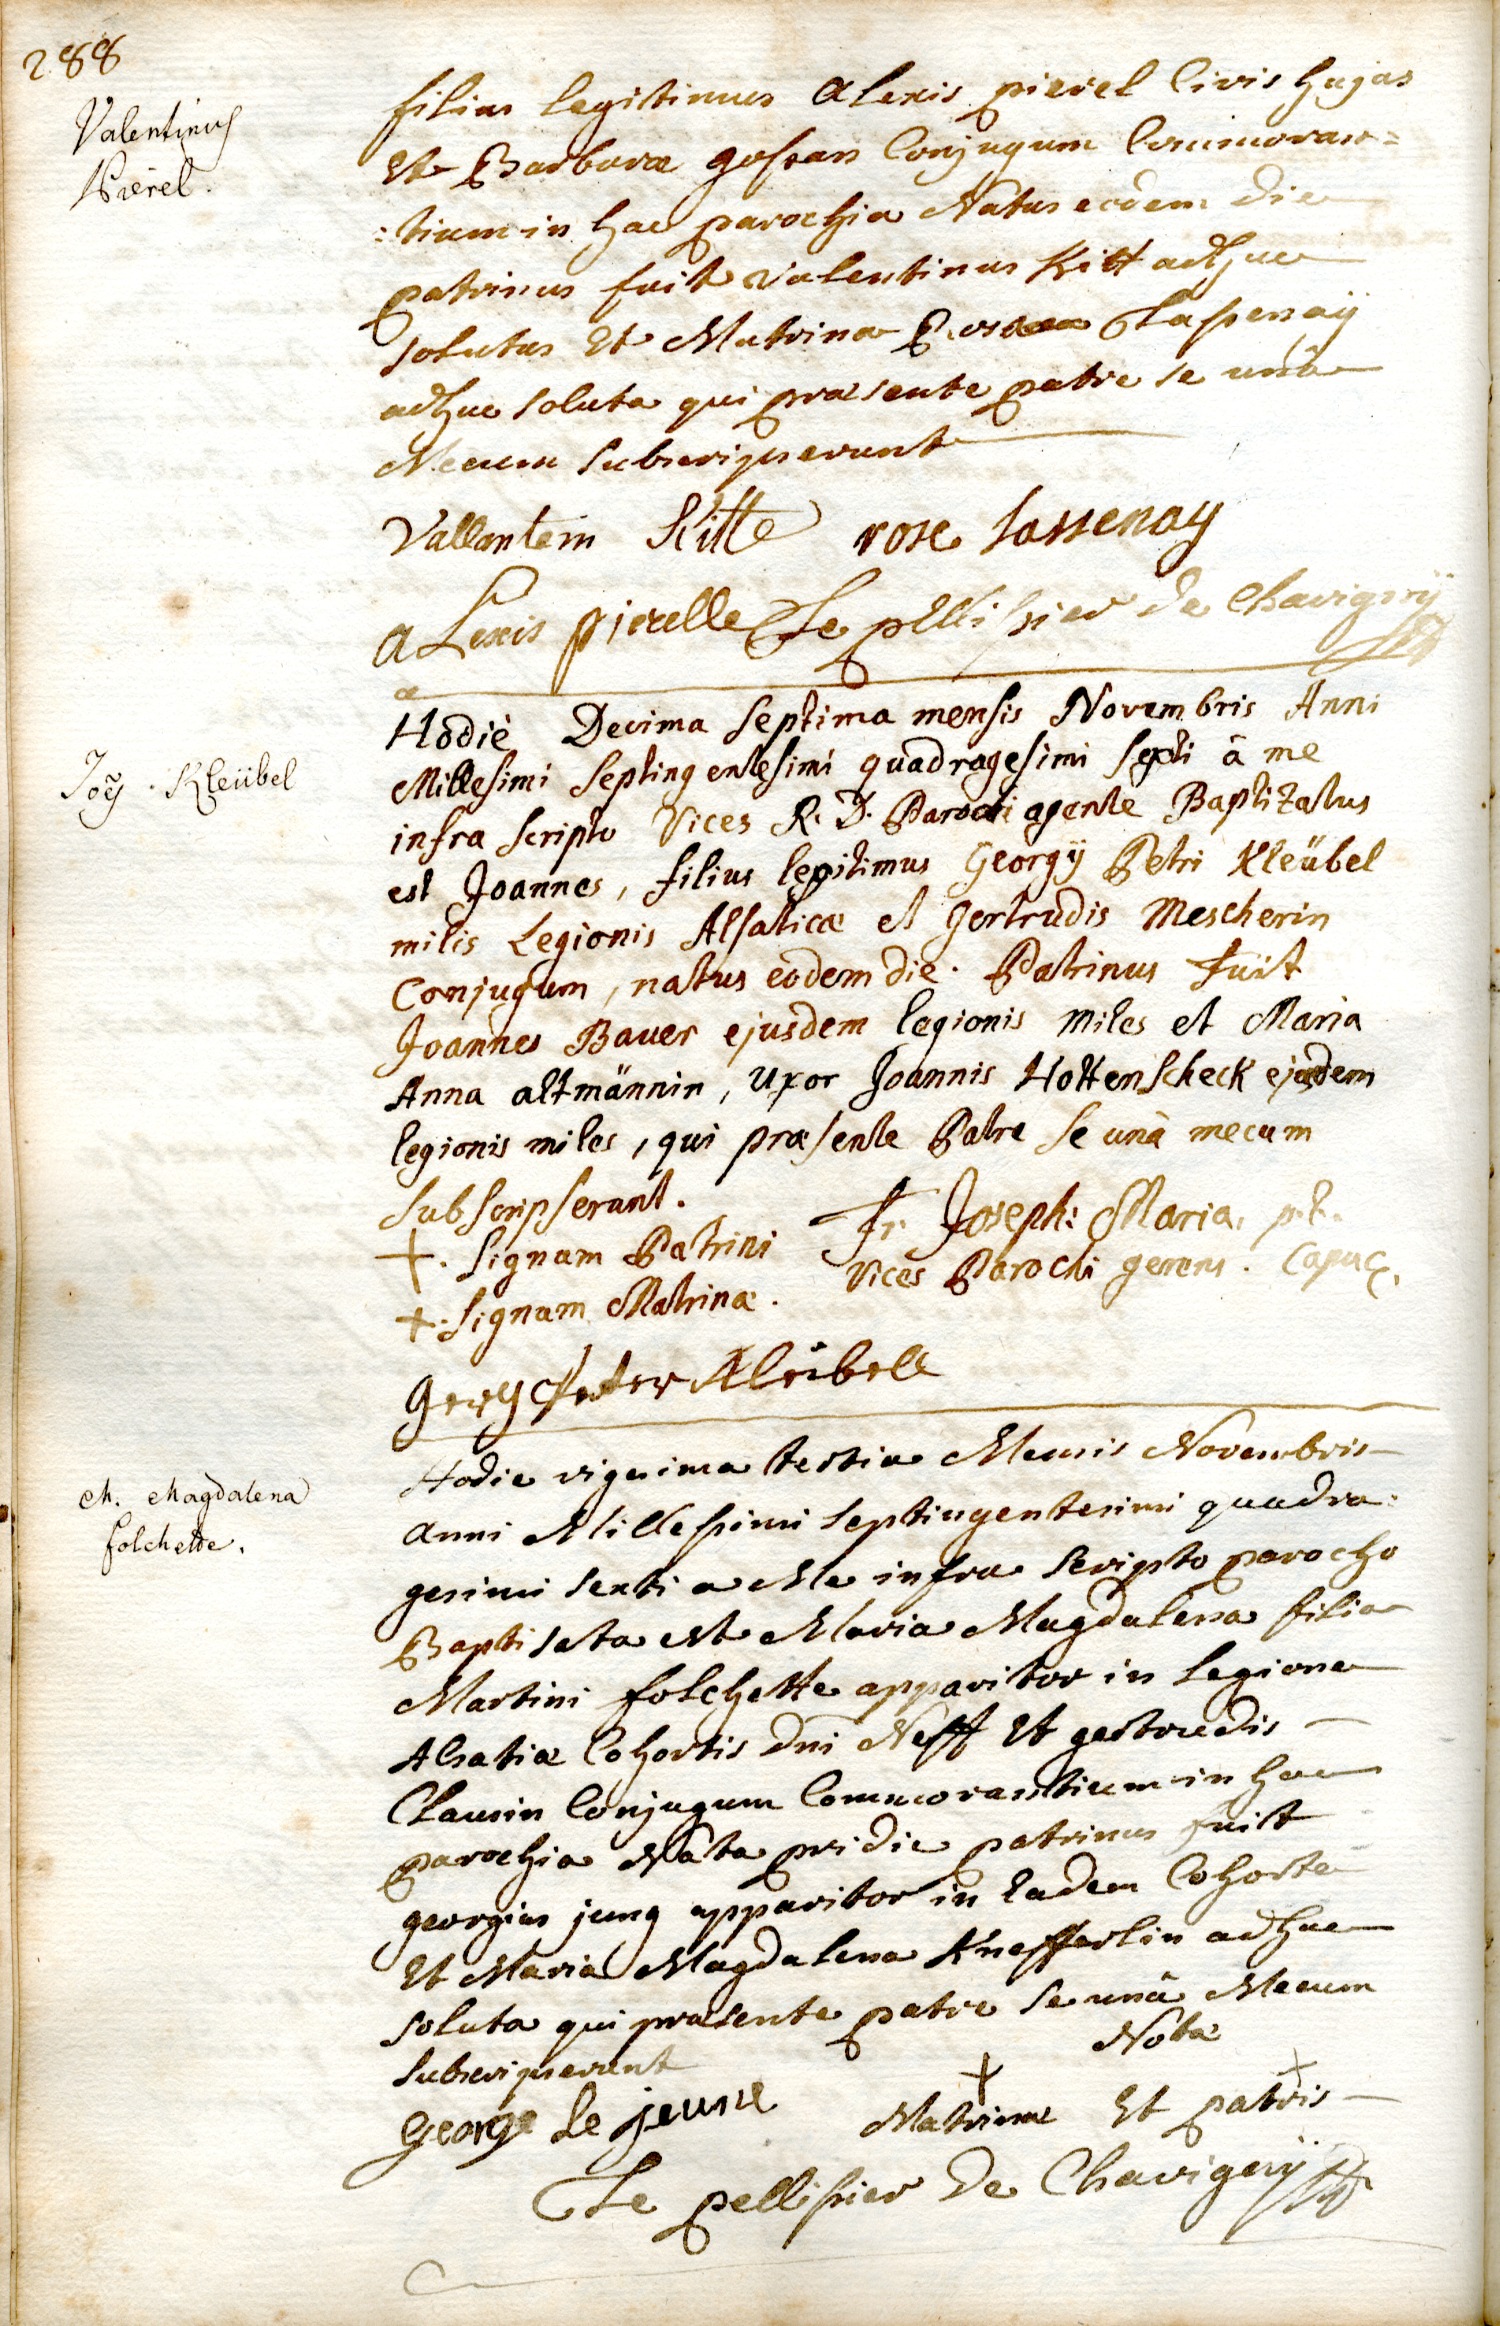 288
Valentinus
Pierel.
filius legitimus Alexis pierel Civis hujas
Et Barbara gossan Conjugum Commoran=
:tium in hac parochia Natus eodem die
patrinus fuit Valentinus Kitt adhuc
solutus Et Matrina Rosa Lassenaÿ
adhuc soluta qui præsente patre se unâ
Mecum Subscripserunt
Vallantein Kitte rose lassenay
aLexis pierelle Le pellissier de Chavignÿ
Joës . Kleübel
Hodiè Decima Septima mensis Novembris Anni
Millesimi Septingentesimi quadragesimi Sexti â me
infra Scripto Vices R. D. Parochi agente Baptizatus
est Joannes, filius legitimus Georgÿ Petri Kleübel
milis Legionis Alsaticæ et Gertrudis Mescherin
Conjugum, natus eodem die. Patrinus Fuit
Joannes Bauer ejusdem legionis miles et Maria
Anna altmännin, Uxor Joannis Hottenscheck ejusdem
legionis miles, qui præsente Patre Se unà mecum
SubScripserunt.
+. Signum Patrini
+. Signum Matrinæ.
Fr. Joseph: Maria, p.t.
Vices Parochi gerens. Capuc.
Georg Peter Kleübell
M. Magdalena
folchette.
Hodie vigesima tertia Mensis Novembris
anni Millesimi Septingentesimi quadra=
gesimi sexti a Me infra Scripto parocho
Baptisata est Maria Magdalena filia
Martini folchette apparitor in Legione
Alsatiæ Cohortis Dni Neff Et gertrudis
Clausin Conjugum Commorantium in hac
parochia Nata pridie patrinus fuit
georgius jung apparitor in Eadem Cohorte
Et Maria Magdalena Knefferlin adhuc
soluta qui præsente patre se unâ Mecum
Subscripserunt
Nota
George Le jeune
+ +
Matrinæ Et patris
Le pellissier De Chavignÿ